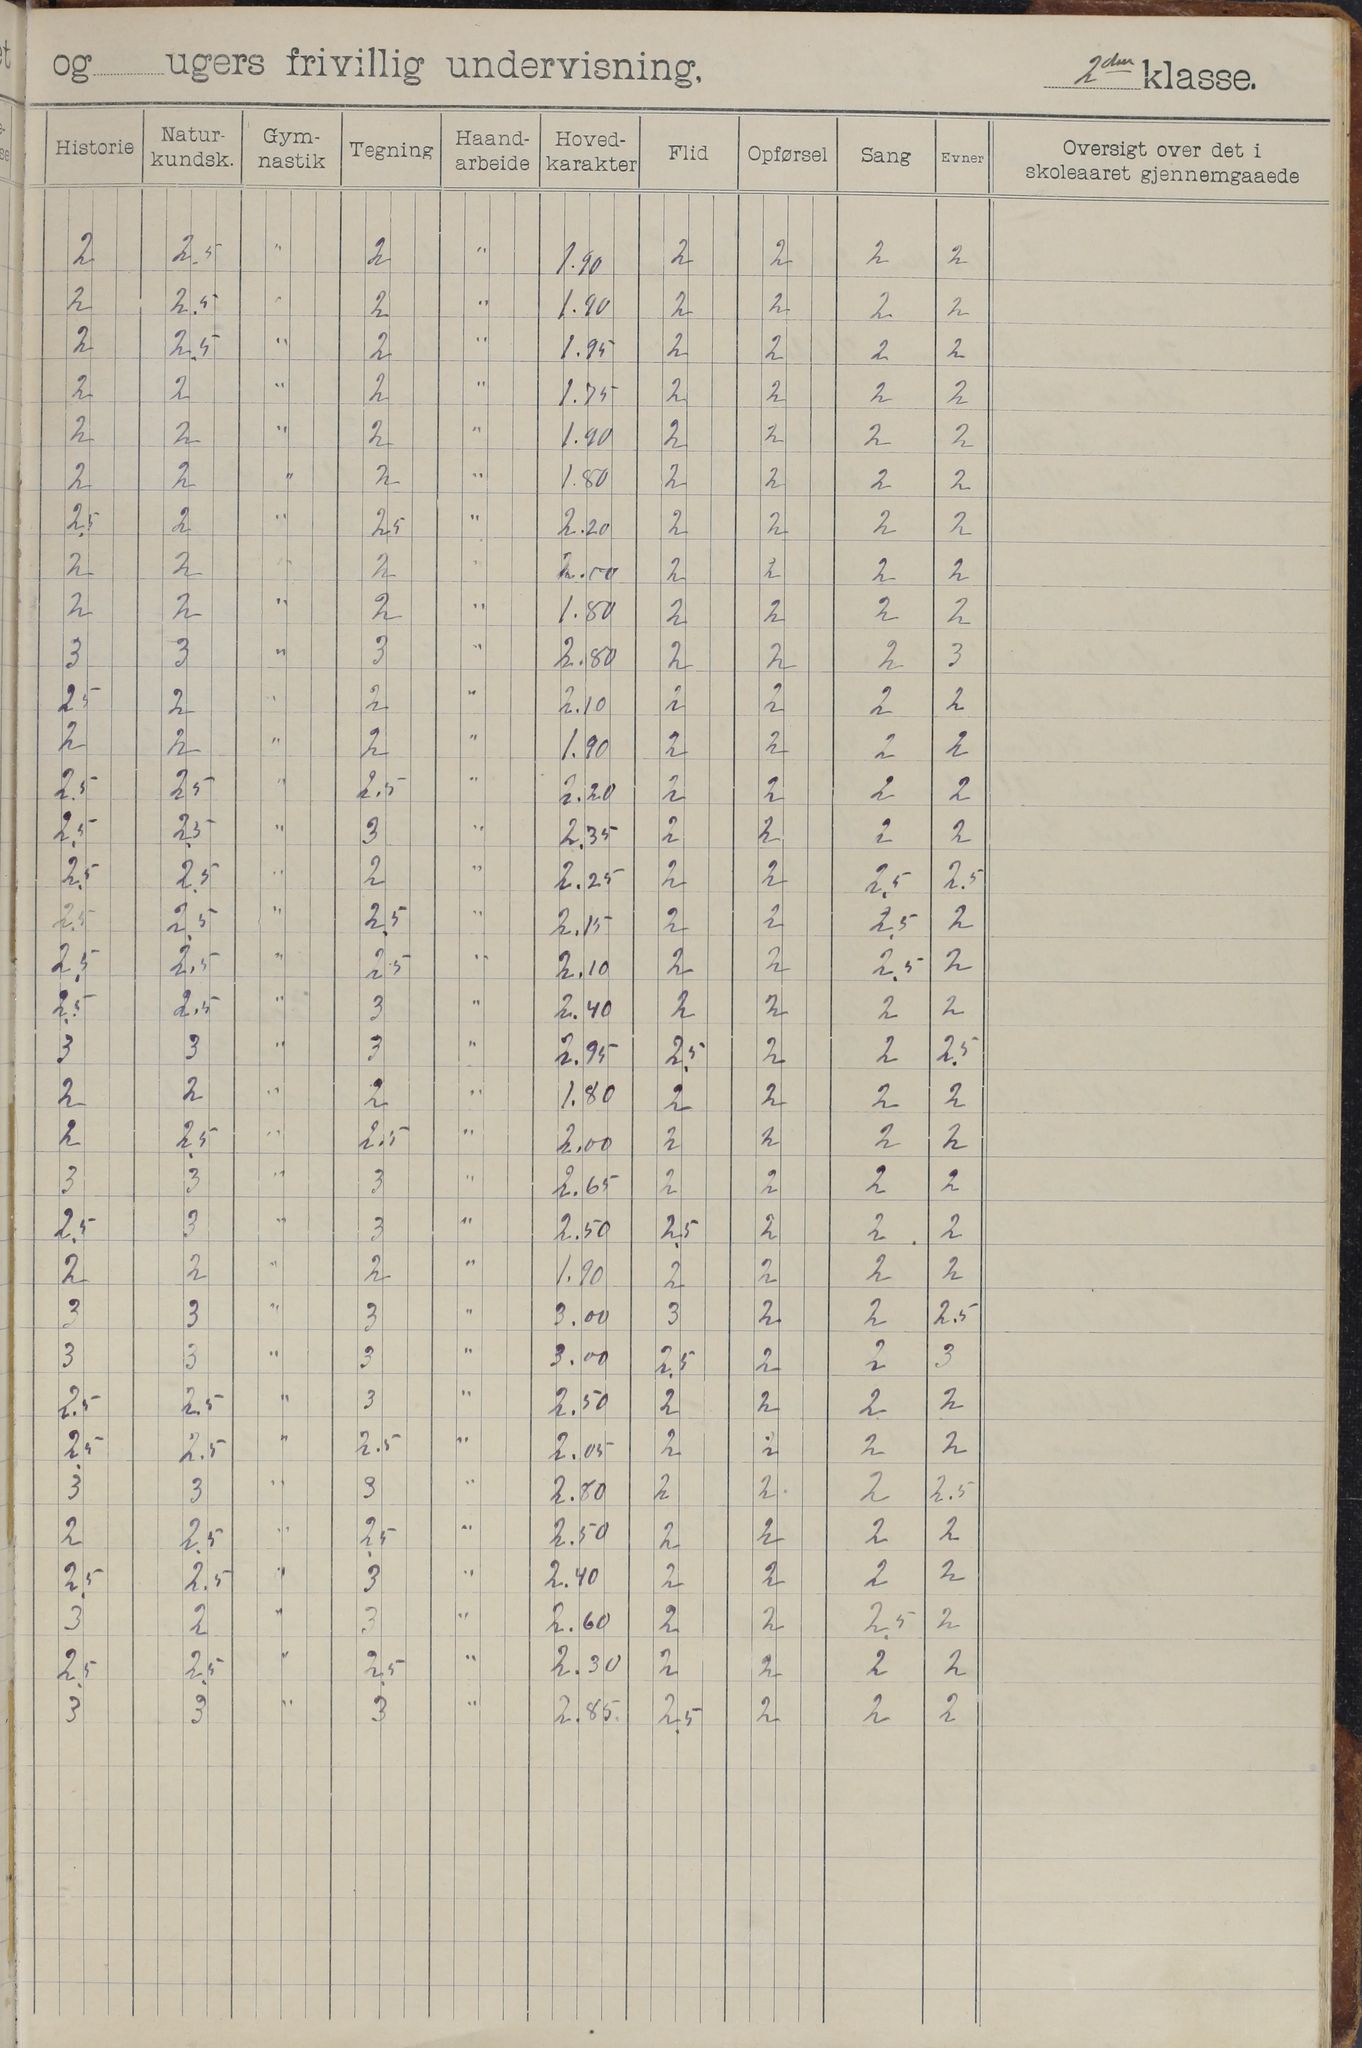 og ugers frivillig undervisning. 2den klasse.
Historie Natur-kundsk. Gym-nastik Tegning Haand-arbeide Hoved-karakter Flid Opførsel Sang Evner Oversigt over det i skoleaaret gjennemgaaede
2 2.5 " 2 " 1.90 2 2 2 2
2 2.5 " 2 " 1.90 2 2 2 2
2 2.5 " 2 " 1.95 2 2 2 2
2 2 " 2 " 1.75 2 2 2 2
2 2 " 2 " 1.90 2 2 2 2
2 2 " 2 " 1.80 2 2 2 2
2.5 2 " 2.5 " 2.20 2 2 2 2
2 2 " 2 " 2.00 2 2 2 2
2 2 " 2 " 1.80 2 2 2 2
3 3 " 3 " 2.80 2 2 2 3
2.5 2 " 2 " 2.10 2 2 2 2
2 2 " 2 " 1.90 2 2 2 2
2.5 2.5 " 2.5 " 2.20 2 2 2 2
2.5 2.5 " 3 " 2.35 2 2 2 2
2.5 2.5 " 2 " 2.25 2 2 2.5 2.5
2.5 2.5 " 2.5 " 2.15 2 2 2.5 2
2.5 2.5 " 2.5 " 2.10 2 2 2.5 2
2.5 2.5 " 3 " 2.40 2 2 2 2
3 3 " 3 " 2.95 2.5 2 2 2.5
2 2 " 2 " 1.80 2 2 2 2
2 2.5 " 2.5 " 2.00 2 2 2 2
3 3 " 3 " 2.65 2 2 2 2
2.5 3 " 3 " 2.50 2.5 2 2 2
2 2 " 2 " 1.90 2 2 2 2
3 3 " 3 " 3.00 3 2 2 2.5
3 3 " 3 " 3.00 2.5 2 2 3
2.5 2.5 " 3 " 2.50 2 2 2 2
2.5 2.5 " 2.5 " 2.05 2 2 2 2
3 3 " 3 " 2.80 2 2 2 2.5
2 2.5 " 2.5 " 2.50 2 2 2 2
2.5 2.5 " 3 " 2.40 2 2 2 2
3 2 " 3 " 2.60 2 2 2.5 2
2.5 2.5 " 2.5 " 2.30 2 2 2 2
3 3 " 3 " 2.85 2.5 2 2 2